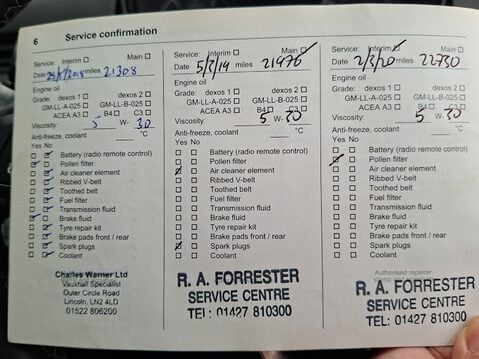 6 Service confirmation
Service: Interim Main
Date 5/2018 miles 21308
Engine oil
Grade: dexos 1 dexos 2
GM-LL-A-025 GM-LL-B-025
ACEA A3 B4 C3
Viscosity: 5 W- 30
Anti-freeze, coolant °C
Yes No
Battery (radio remote control)
Pollen filter
Air cleaner element
Ribbed V-belt
Toothed belt
Fuel filter
Transmission fluid
Brake fluid
Tyre repair kit
Brake pads front / rear
Spark plugs
Coolant
Charles Warner Ltd
Vauxhall Specialist
Outer Circle Road
Lincoln, LN2 4LD
01522 806200
Service: Interim Main
Date 5/3/19 miles 21976
Engine oil
Grade: dexos 1 dexos 2
GM-LL-A-025 GM-LL-B-025
ACEA A3 B4 C3
Viscosity: 5 W- 30
Anti-freeze, coolant °C
Yes No
Battery (radio remote control)
Pollen filter
Air cleaner element
Ribbed V-belt
Toothed belt
Fuel filter
Transmission fluid
Brake fluid
Tyre repair kit
Brake pads front / rear
Spark plugs
Coolant
R. A. FORRESTER
SERVICE CENTRE
TEL: 01427 810300
Service: Interim Main
Date 2/3/20 miles 22730
Engine oil
Grade: dexos 1 dexos 2
GM-LL-A-025 GM-LL-B-025
ACEA A3 B4 C3
Viscosity: 5 W- 30
Anti-freeze, coolant °C
Yes No
Battery (radio remote control)
Pollen filter
Air cleaner element
Ribbed V-belt
Toothed belt
Fuel filter
Transmission fluid
Brake fluid
Tyre repair kit
Brake pads front / rear
Spark plugs
Coolant
Authorised repairer
R. A. FORRESTER
SERVICE CENTRE
TEL: 01427 810300